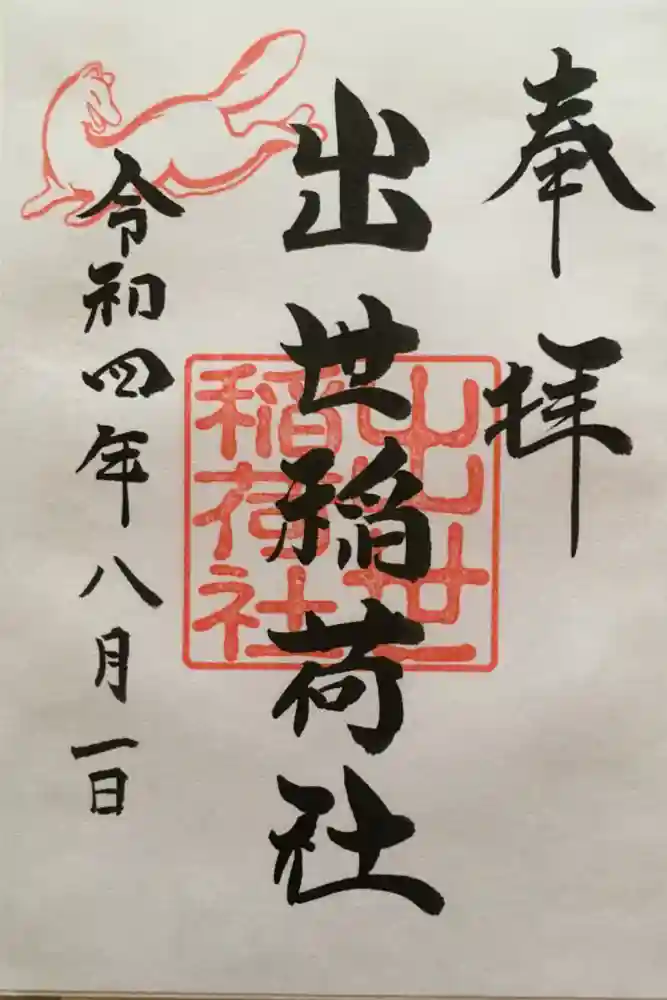 奉拝
出世稲荷社
出世
稲荷社
令和四年八月一日